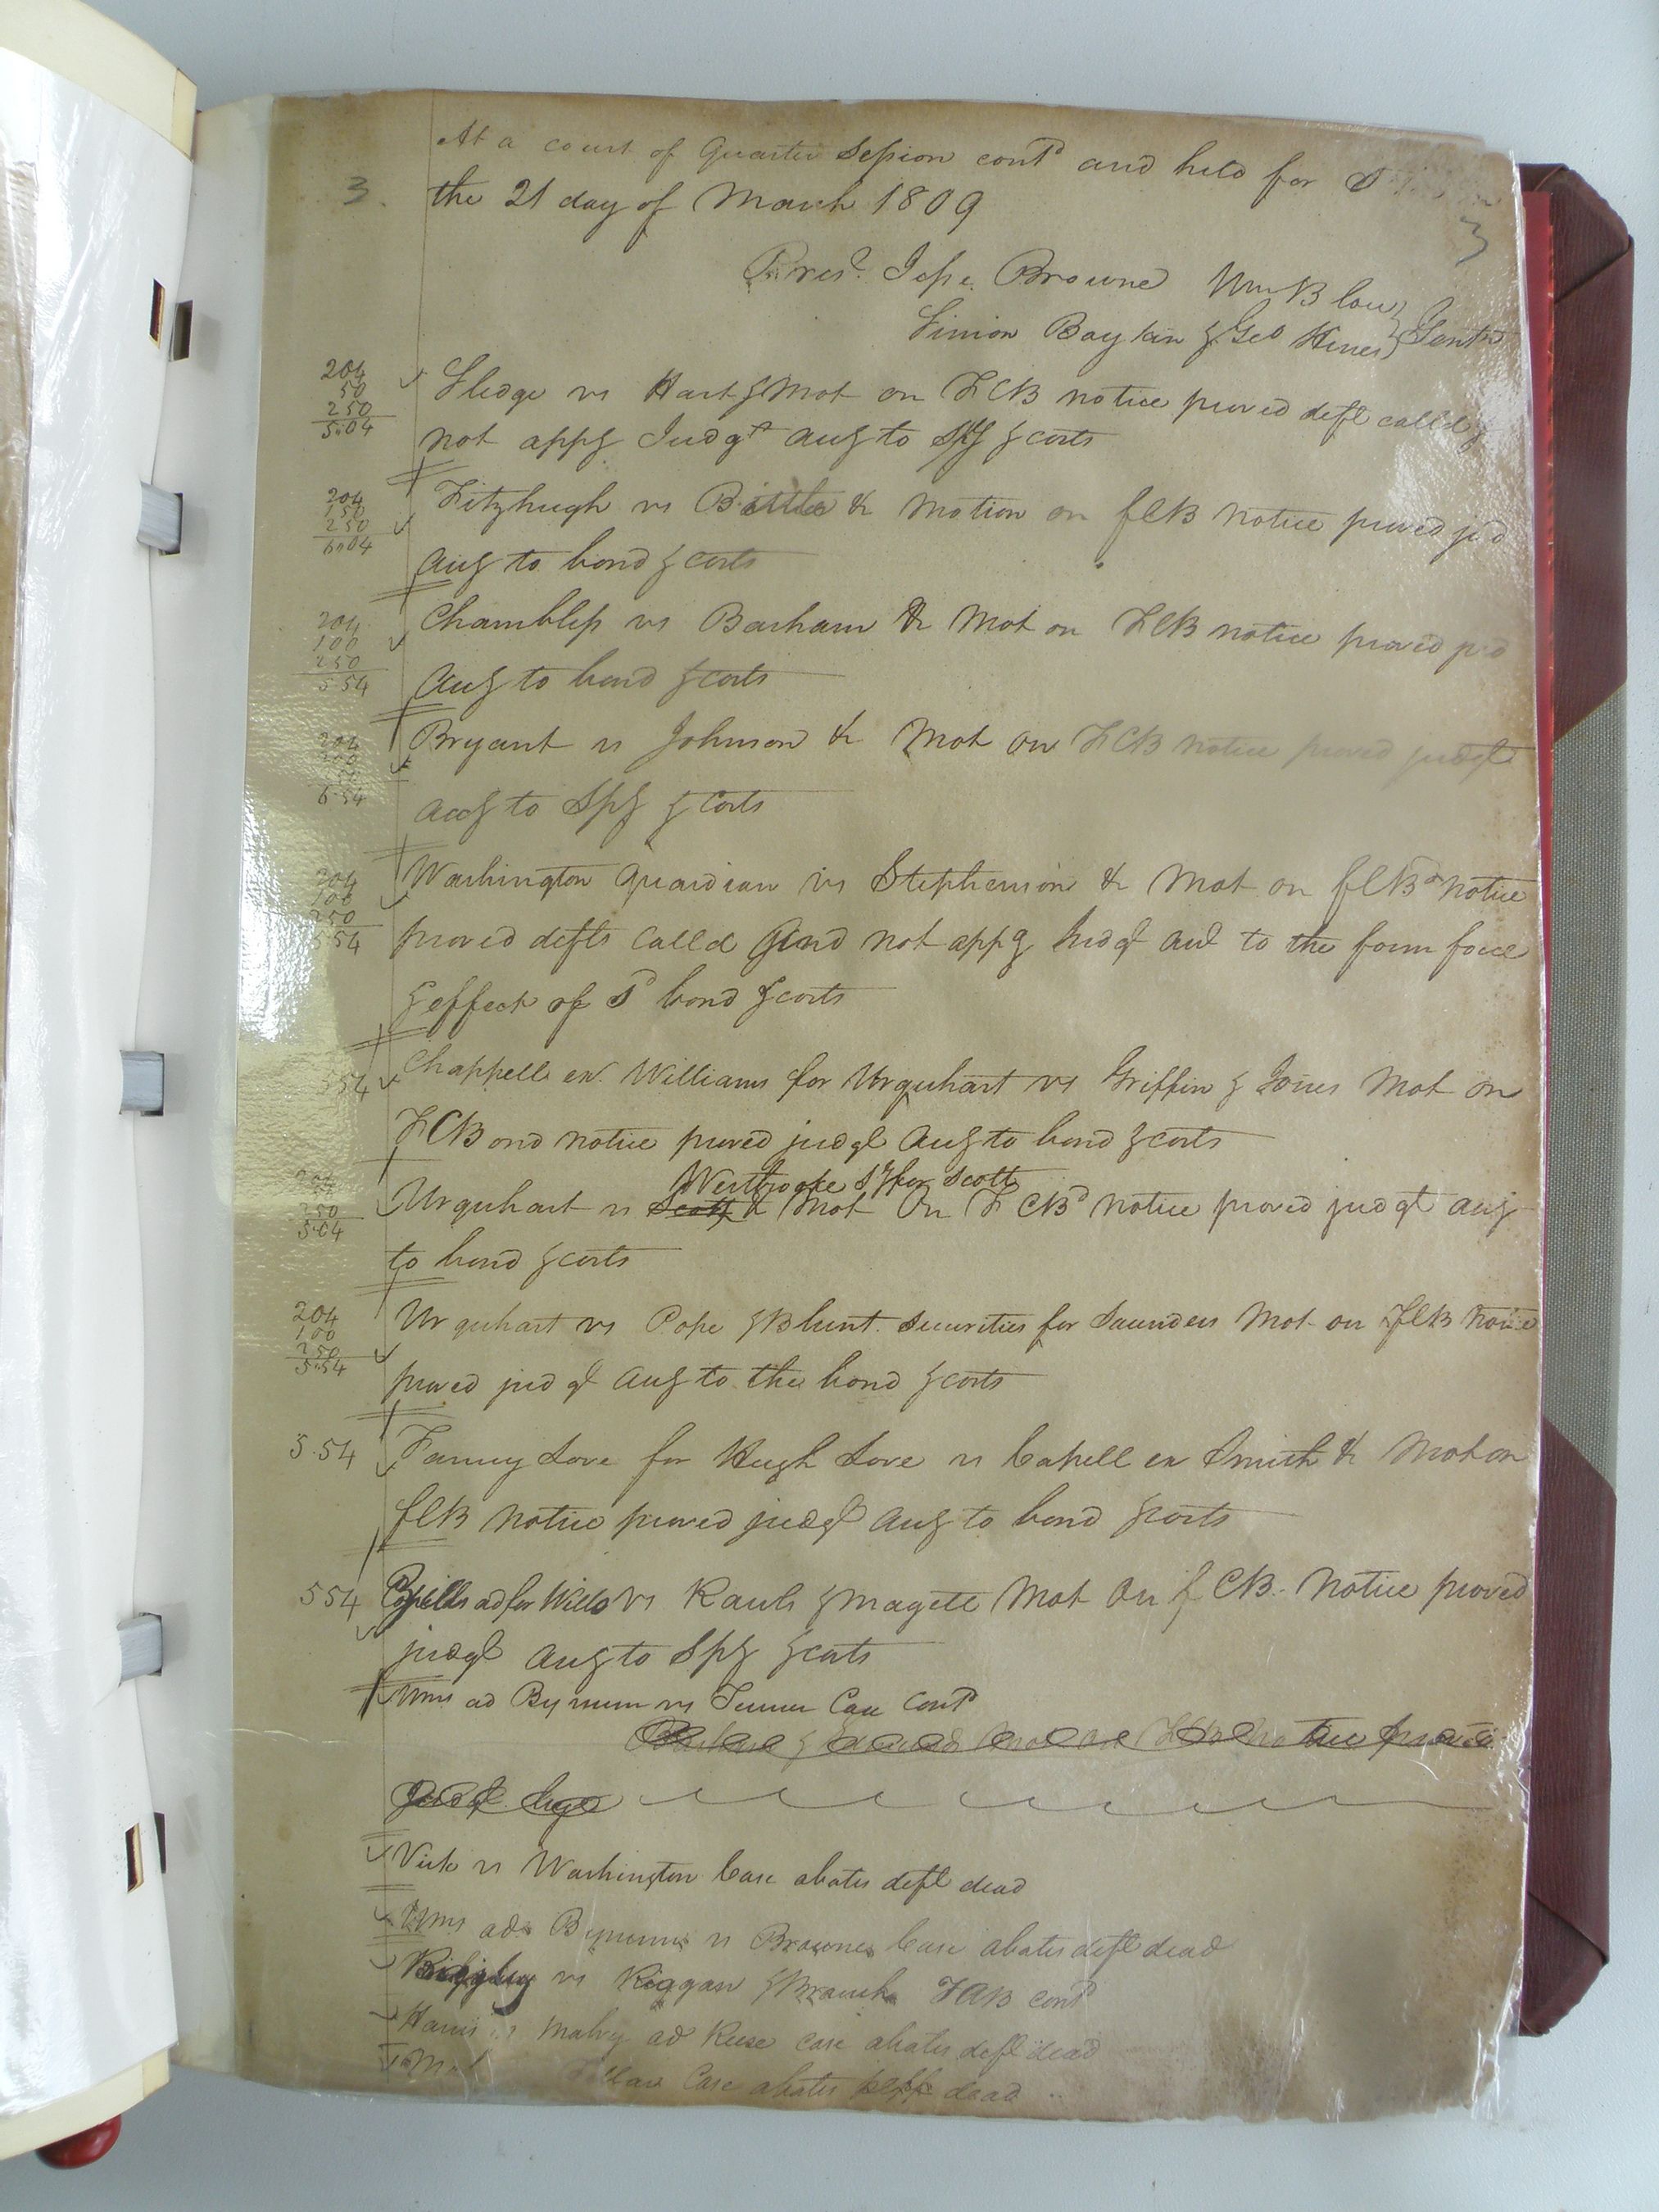 At a court of Quarter Session contd and held for S
3. the 21 day of March 1809
3
Prest. Jesse Browne Wm Blow
Simon Boykin & Geo Hines } Gent
204
50
250
5.04
Sledge vs Hart & Mot on FCB notice proved deft calld &
not appg Judgt accg to Spy & costs
204
150
250
6.04
Fitzhugh vs Bittle &c Motion on fCB notice proved jud
accg to bond & costs
204
100
250
5 54
Chambless vs Barham &c Mot on FCB notice proved jud
accg to bond & costs
204
6.54
Bryant vs Johnson &c Mot on FCB notice proved judgt
accg to Spy & Costs
204
100
250
554
Washington Guardian vs Stephenson &c Mot on fCBd notice
proved defts calld and not appg Judgt acc to the form force
& effect of sd bond & costs
554
Chappell ex. Williams for Urquhart vs Griffin & Jones Mot on
FCB ond notice proved judgt accg to bond & costs
Westbrooke Sy for Scott
250
5.04
Urquhart vs Scott & Mot On F CBd notice proved judgt accg
to bond & costs
204
100
250
5.54
Urquhart vs Pope & Blunt Securities for Saunders Mot on fCB notice
proved judgt accg to the bond & costs
5.54
Fanny Love for Hugh Love vs Capell ex Smith &c Mot on
fCB notice proved judgt accg to bond & costs
554
ad for Wills vs Rawls & Magett Mot On f CB. Notice proved
judgt accg to Spy & costs
Wms ad Bynum vs Turner Case Contd
Vick vs Washington Case abates deft dead
Wms ad. Bynums vs Brownes Case abates deft dead
vs Riggan & Branch FCB contd
Harris vs Malvy ad Reese case abates deft dead
Case abates dead